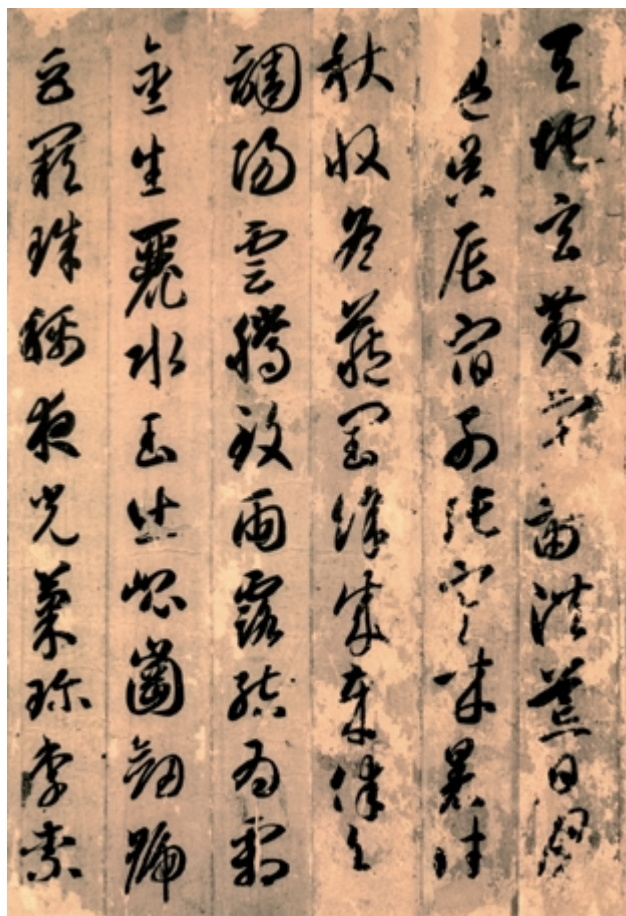 天地玄黃宇宙洪荒日月
盈昃辰宿列張寒來暑往
秋收冬藏閏餘成歲律呂
調陽雲騰致雨露結為霜
金生麗水玉出崑崗劒號
巨闕珠稱夜光菓珍李柰